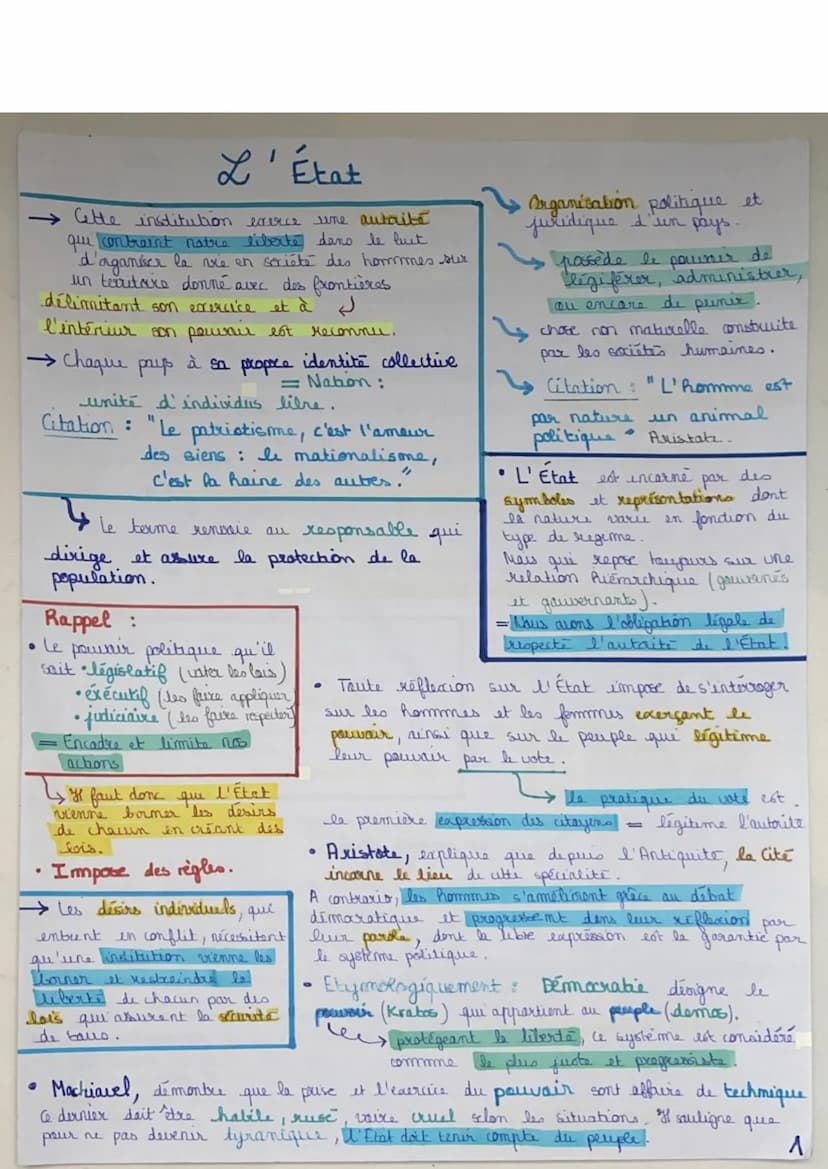 L'État
→ Cette institution exerce une autorité
qui contraint notre liberté dans le but
d'organiser la vie en société des hommes sur
un territoire donné avec des frontières
délimitant son exercice et à
l'intérieur son pouvoir est reconnu.
→ Chaque pays à sa propre identité collective
= Nation :
unité d'individus libre.
Citation : "Le patriotisme, c'est l'amour
des siens : le nationalisme,
c'est la haine des autres."
Organisation politique et
juridique d'un pays.
possède le pouvoir de
légiférer, administrer,
ou encore de punir.
chose non naturelle construite
par les sociétés humaines.
Citation : "L'homme est
par nature un animal
politique" Aristote.
• L'État est incarné par des
symboles et représentations dont
la nature varie en fonction du
type de régime.
Mais qui repose toujours sur une
relation hiérarchique (gouvernés
et gouvernants).
= Nous avons l'obligation légale de
respecté l'autorité de l'État.
Le terme renvoie au responsable qui
dirige et assure la protection de la
population.
Rappel :
• Le pouvoir politique qu'il
soit • législatif (voter les lois)
• exécutif (les faire appliquer)
• judiciaire (les faire respecter)
= Encadre et limite nos
actions
Il faut donc que l'État
vienne borner les désirs
de chacun en créant des
lois.
• Impose des règles.
→ Les désirs individuels, qui
entrent en conflit, nécessitent
qu'une institution vienne les
borner et restreindre la
liberté de chacun par des
lois qui assurent la sécurité
de tous.
• Toute réflexion sur l'État impose de s'interroger
sur les hommes et les femmes exerçant le
pouvoir, ainsi que sur le peuple qui légitime
leur pouvoir par le vote.
la pratique du vote est
la première expression des citoyens = légitime l'autorité
• Aristote, explique que depuis l'Antiquité, la Cité
incarne le lieu de cette spécialité.
A contrario, les hommes s'améliorent grâce au débat
démocratique et progressent dans leur réflexion par
leur parole, dont la libre expression est la garantie par
le système politique.
• Etymologiquement : Démocratie désigne le
pouvoir (Kratos) qui appartient au peuple (demos).
protégeant la liberté, ce système est considéré
comme le plus juste et progressiste.
• Machiavel, démontre que la prise et l'exercice du pouvoir sont affaire de technique
Ce dernier doit être habile, rusé, voire cruel selon les situations. Il souligne que
pour ne pas devenir tyrannique, l'État doit tenir compte du peuple.
1